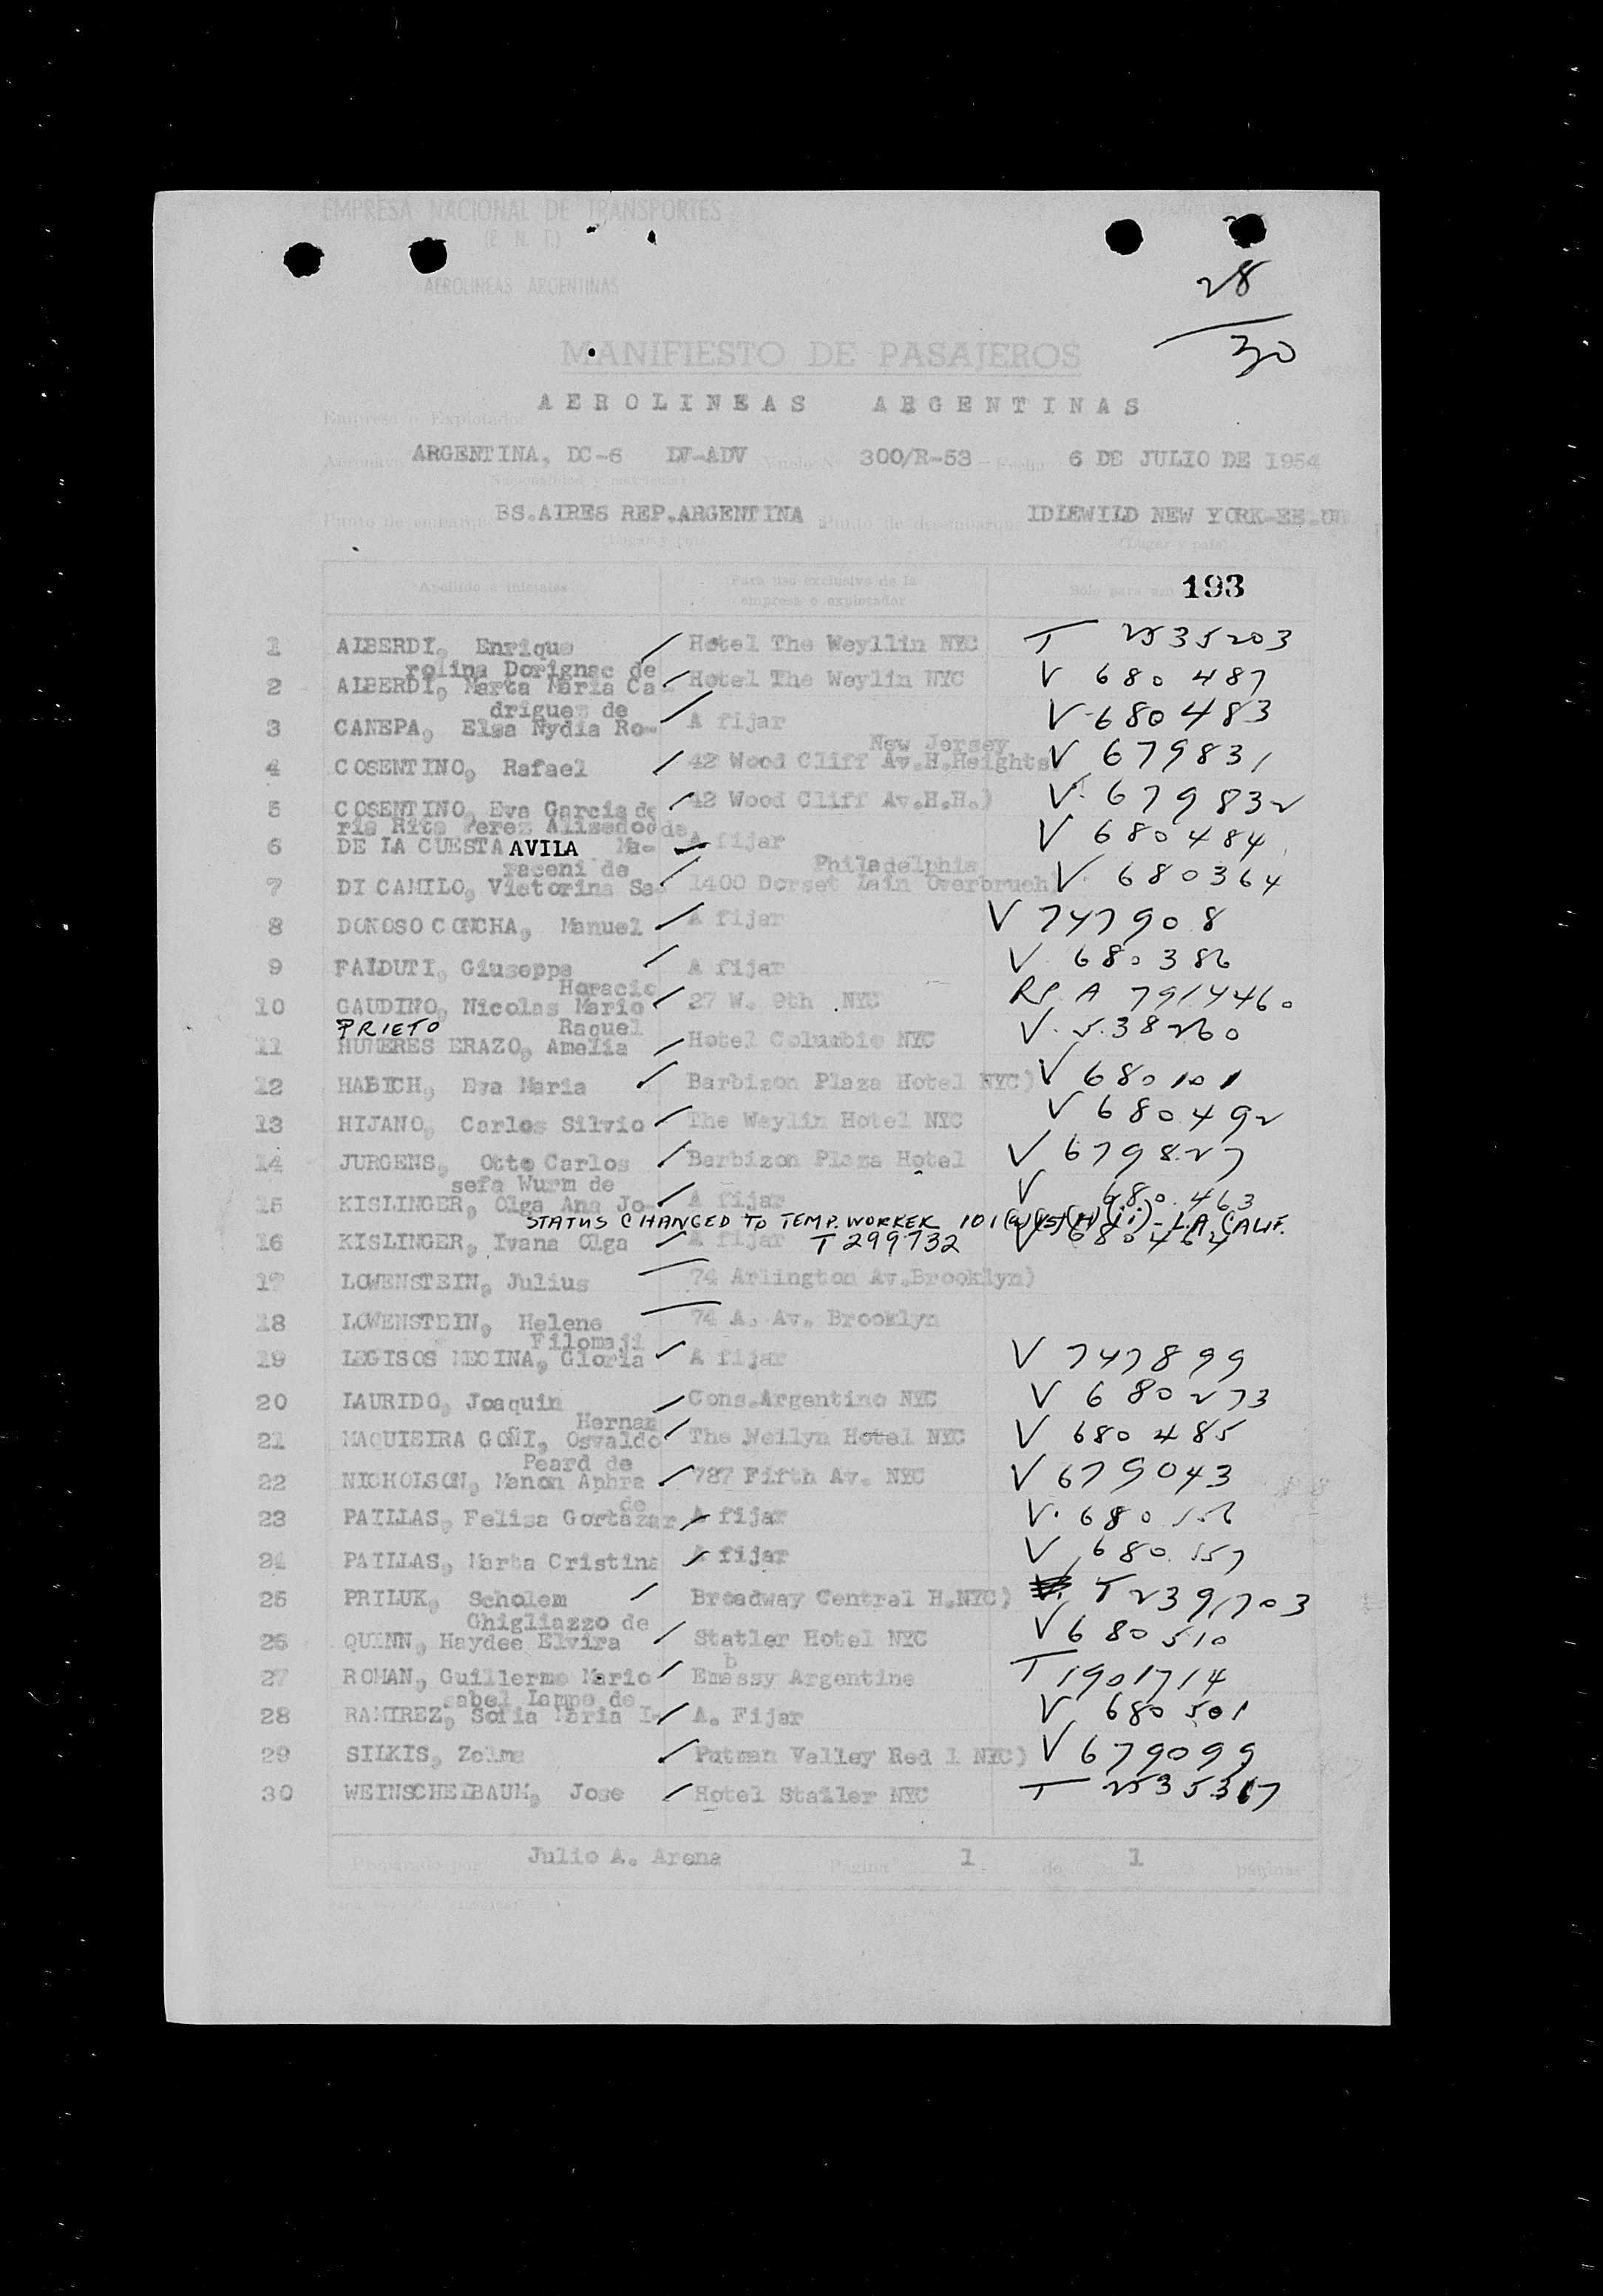 EMPRESA NACIONAL DE TRANSPORTES
(E. N. T.)
AEROLINEAS ARGENTINAS
28
30
MANIFIESTO DE PASAJEROS
Empresa o Explotador AEROLINEAS ARGENTINAS
Aeronave ARGENTINA, DC-6 LV-ADV Vuelo Nº 300/R-53 - Fecha 6 DE JULIO DE 1954
(Nacionalidad y matrícula)
Punto de embarque BS.AIRES REP.ARGENTINA Punto de desembarque IDLEWILD NEW YORK-EE.UU
(Lugar y país) (Lugar y país)
Apellido e iniciales Para uso exclusivo de la empresa o explotador Sólo para uso 193
1 ALBERDI, Enrique Hotel The Weyllin NYC T 2535203
rolina Dorignac de
2 ALBERDI, Marta Maria Ca- Hotel The Weylin NYC V 680487
driguez de
3 CANEPA, Elsa Nydia Ro- A fijar V-680483
New Jersey
4 COSENTINO, Rafael 42 Wood Cliff Av.H.Heights V 679831
5 COSENTINO, Eva Garcia de 42 Wood Cliff Av.H.H.) V. 679832
ria Rita Perez Alisedo de
6 DE LA CUESTA AVILA Ma- A fijar V 680484
raceni de Philadelphia
7 DI CAMILO, Victorina Sa- 1400 Dorset Lain Overbruch V. 680364
8 DONOSO CONCHA, Manuel A fijar V 747908
9 FALDUTI, Giuseppe A fijar V. 680386
Horacio
10 GAUDINO, Nicolas Mario 27 W. 9th .NYC RP. A 7914460
PRIETO Raquel
11 HUMERES ERAZO, Amelia Hotel Columbie NYC V. 538260
12 HABICH, Eva Maria Barbizon Plaza Hotel NYC) V 680101
13 HIJANO, Carlos Silvio The Weylin Hotel NYC V 680492
14 JURGENS, Otto Carlos Barbizon Plaza Hotel V 679827
sefa Wurm de
15 KISLINGER, Olga Ana Jo- A fijar V 680463
STATUS CHANGED TO TEMP. WORKER 101(a)(15)(H)(ii) - L.A. CALIF.
16 KISLINGER, Ivana Olga A fijar T 299732 V 680464
17 LOWENSTEIN, Julius 74 Arlington Av.Brooklyn)
18 LOWENSTEIN, Helene 74 A. Av. Brooklyn
Filomaji
19 LEGISOS MECINA, Gloria A fijar V 747899
20 LAURIDO, Joaquin Cons.Argentino NYC V 680273
Hernan
21 MAQUIEIRA GOÑI, Osvaldo The Weilyn Hotel NYC V 680485
Peard de
22 NICHOLSON, Manon Aphra 787 Fifth Av. NYC V 679043
de
23 PAILLAS, Felisa Gortazar A fijar V. 680556
24 PAILLAS, Marta Cristina A fijar V 680557
25 PRILUK, Scholem Broadway Central H.NYC) T 2391703
Ghigliazzo de
26 QUINN, Haydee Elvira Statler Hotel NYC V 680510
b
27 ROMAN, Guillermo Mario Emassy Argentine T 1901714
sabel Lampe de
28 RAMIREZ, Sofia Maria I- A. Fijar V 680501
29 SILKIS, Zelma Putman Valley Red 1 NYC) V 679099
30 WEINSCHELBAUM, Jose Hotel Stailer NYC T 2535317
Preparado por Julio A. Arena Página 1 de 1 páginas